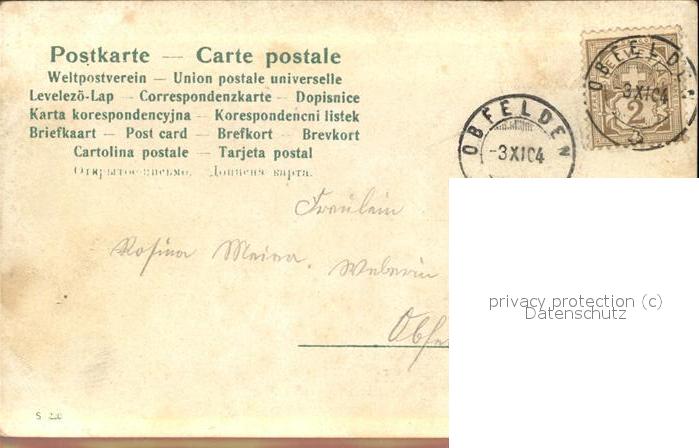 Postkarte — Carte postale
Weltpostverein — Union postale universelle
Levelező-Lap — Correspondenzkarte — Dopisnice
Karta korespondencyjna — Korespondencni listek
Briefkaart — Post card — Brefkort — Brevkort
Cartolina postale — Tarjeta postal
Открытое письмо.
OBFELDEN
-3XI04
OBFELDEN
-3XI04
2
Fräulein
Rosina Meier. Weberin
Obfe
privacy protection (c)
Datenschutz